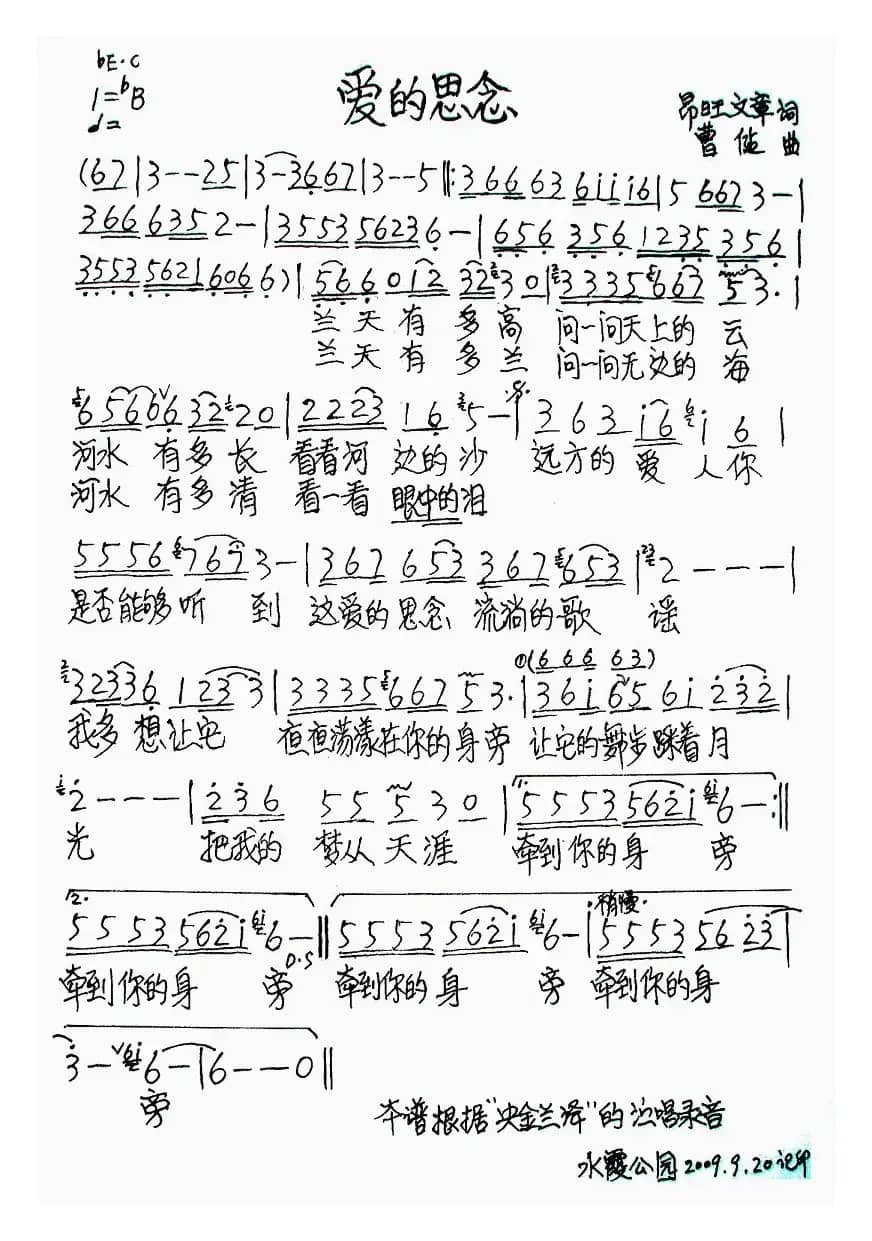 bE·C
1=bB
爱的思念
昂旺文章 词
曹 曲
(67|3--25|3-3667|3--5‖:366 63 6iii6|5 667 3-|
366 6352-|3553 56236-|656 356 1235 356|
3553 5621 6066)|566012 3230|3335 667 53·|
兰天有多高 问一问天上的云
兰天有多兰 问一问无边的海
6566632 20|2223 16 5-|363 i6 i6|
河水有多长 看看河边的沙 远方的爱人你
河水有多清 看一看眼中的泪
5556 767 3-|367 653 367 653|2---|
是否能够听到 这爱的思念 流淌的歌谣
①(666 63)
32336 1233|3335 667 53·|36i 65 6i 232|
我多想让它 夜夜荡漾在你的身旁 让它的舞步踩着月
2---|236 55 530|1. 5553 562i 6-:‖
光 把我的梦从天涯 牵到你的身旁
2. 稍慢·
5553 562i 6-‖5553 562i 6-|5553 56 23|
D.S
牵到你的身旁 牵到你的身旁 牵到你的身
3-6-|6--0‖
旁
本谱根据"央金兰泽"的演唱录音
水霞公园2009.9.20记